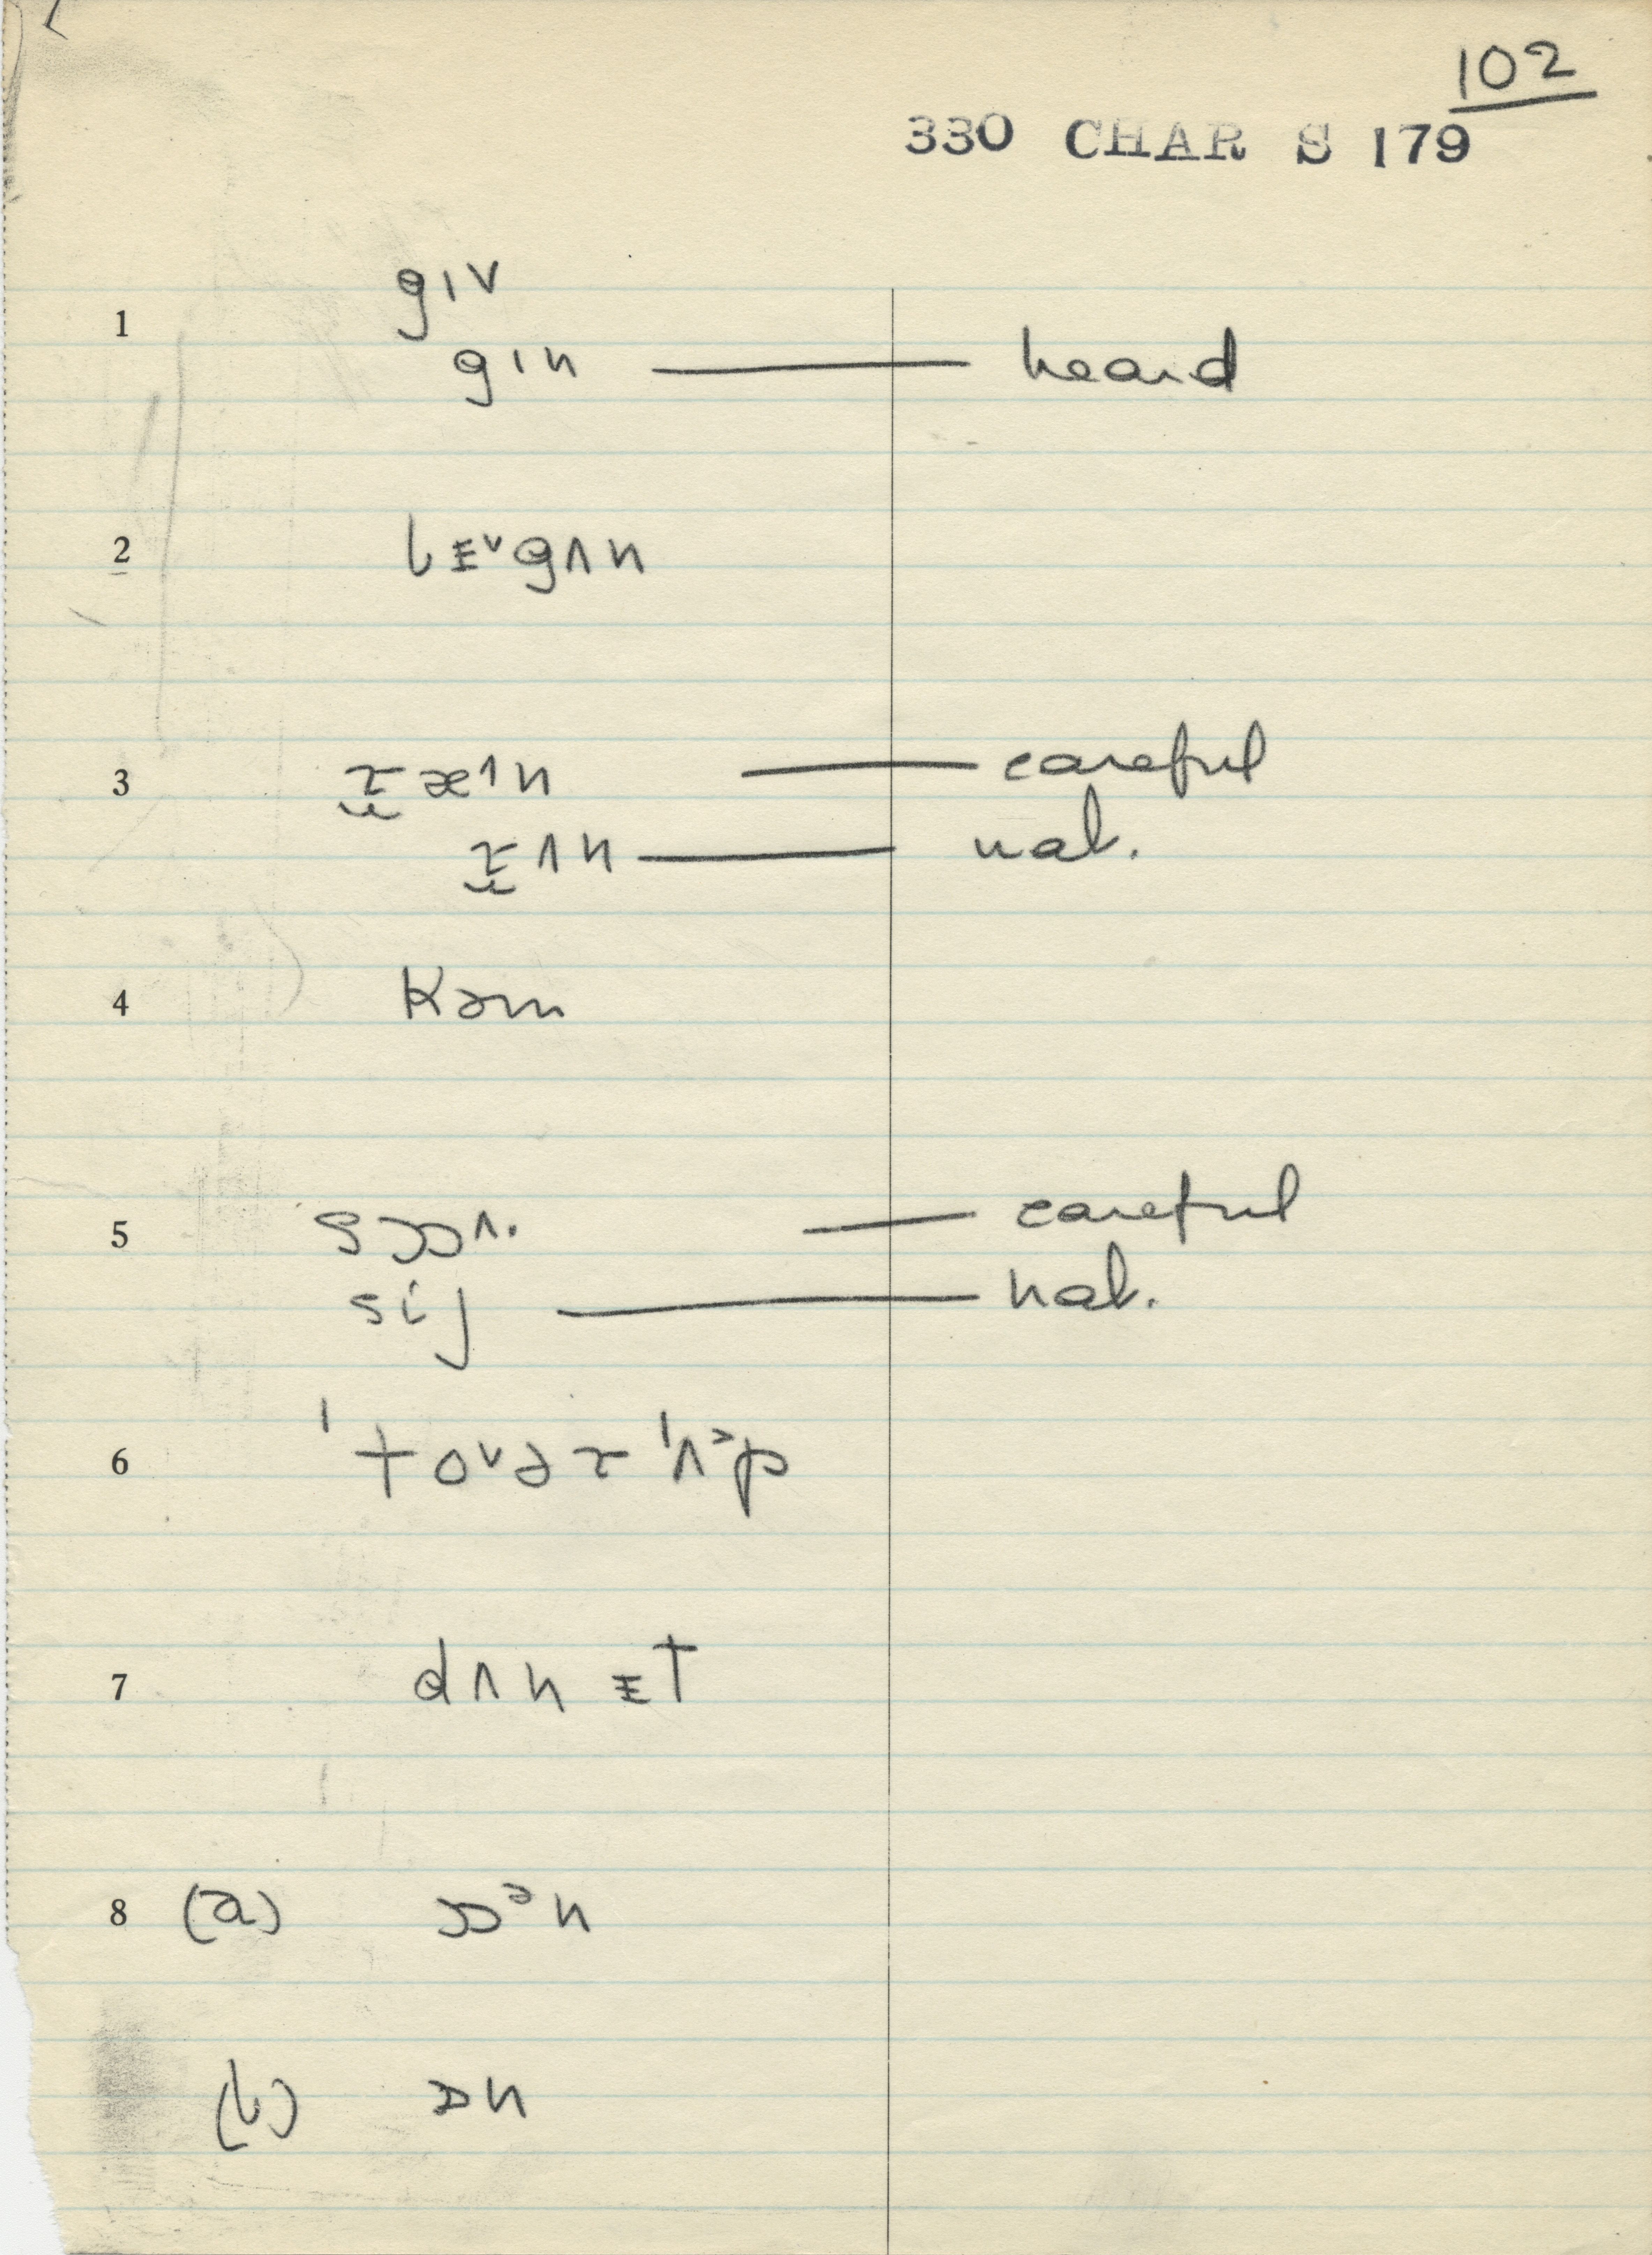 102
330 CHAR S 179
1 gɪv
gɪn — heard
2 bɛᵛgʌn
3 ɾ̫æ^n — careful
ɾ̫ʌn — nat.
4 kəm
5 sɔɔʌ. — careful
sij — nat.
6 ˈtoᵛəɾˈʌᵊp
7 dʌn ɛt
8 (a) ɒᵊn
(b) ɒn